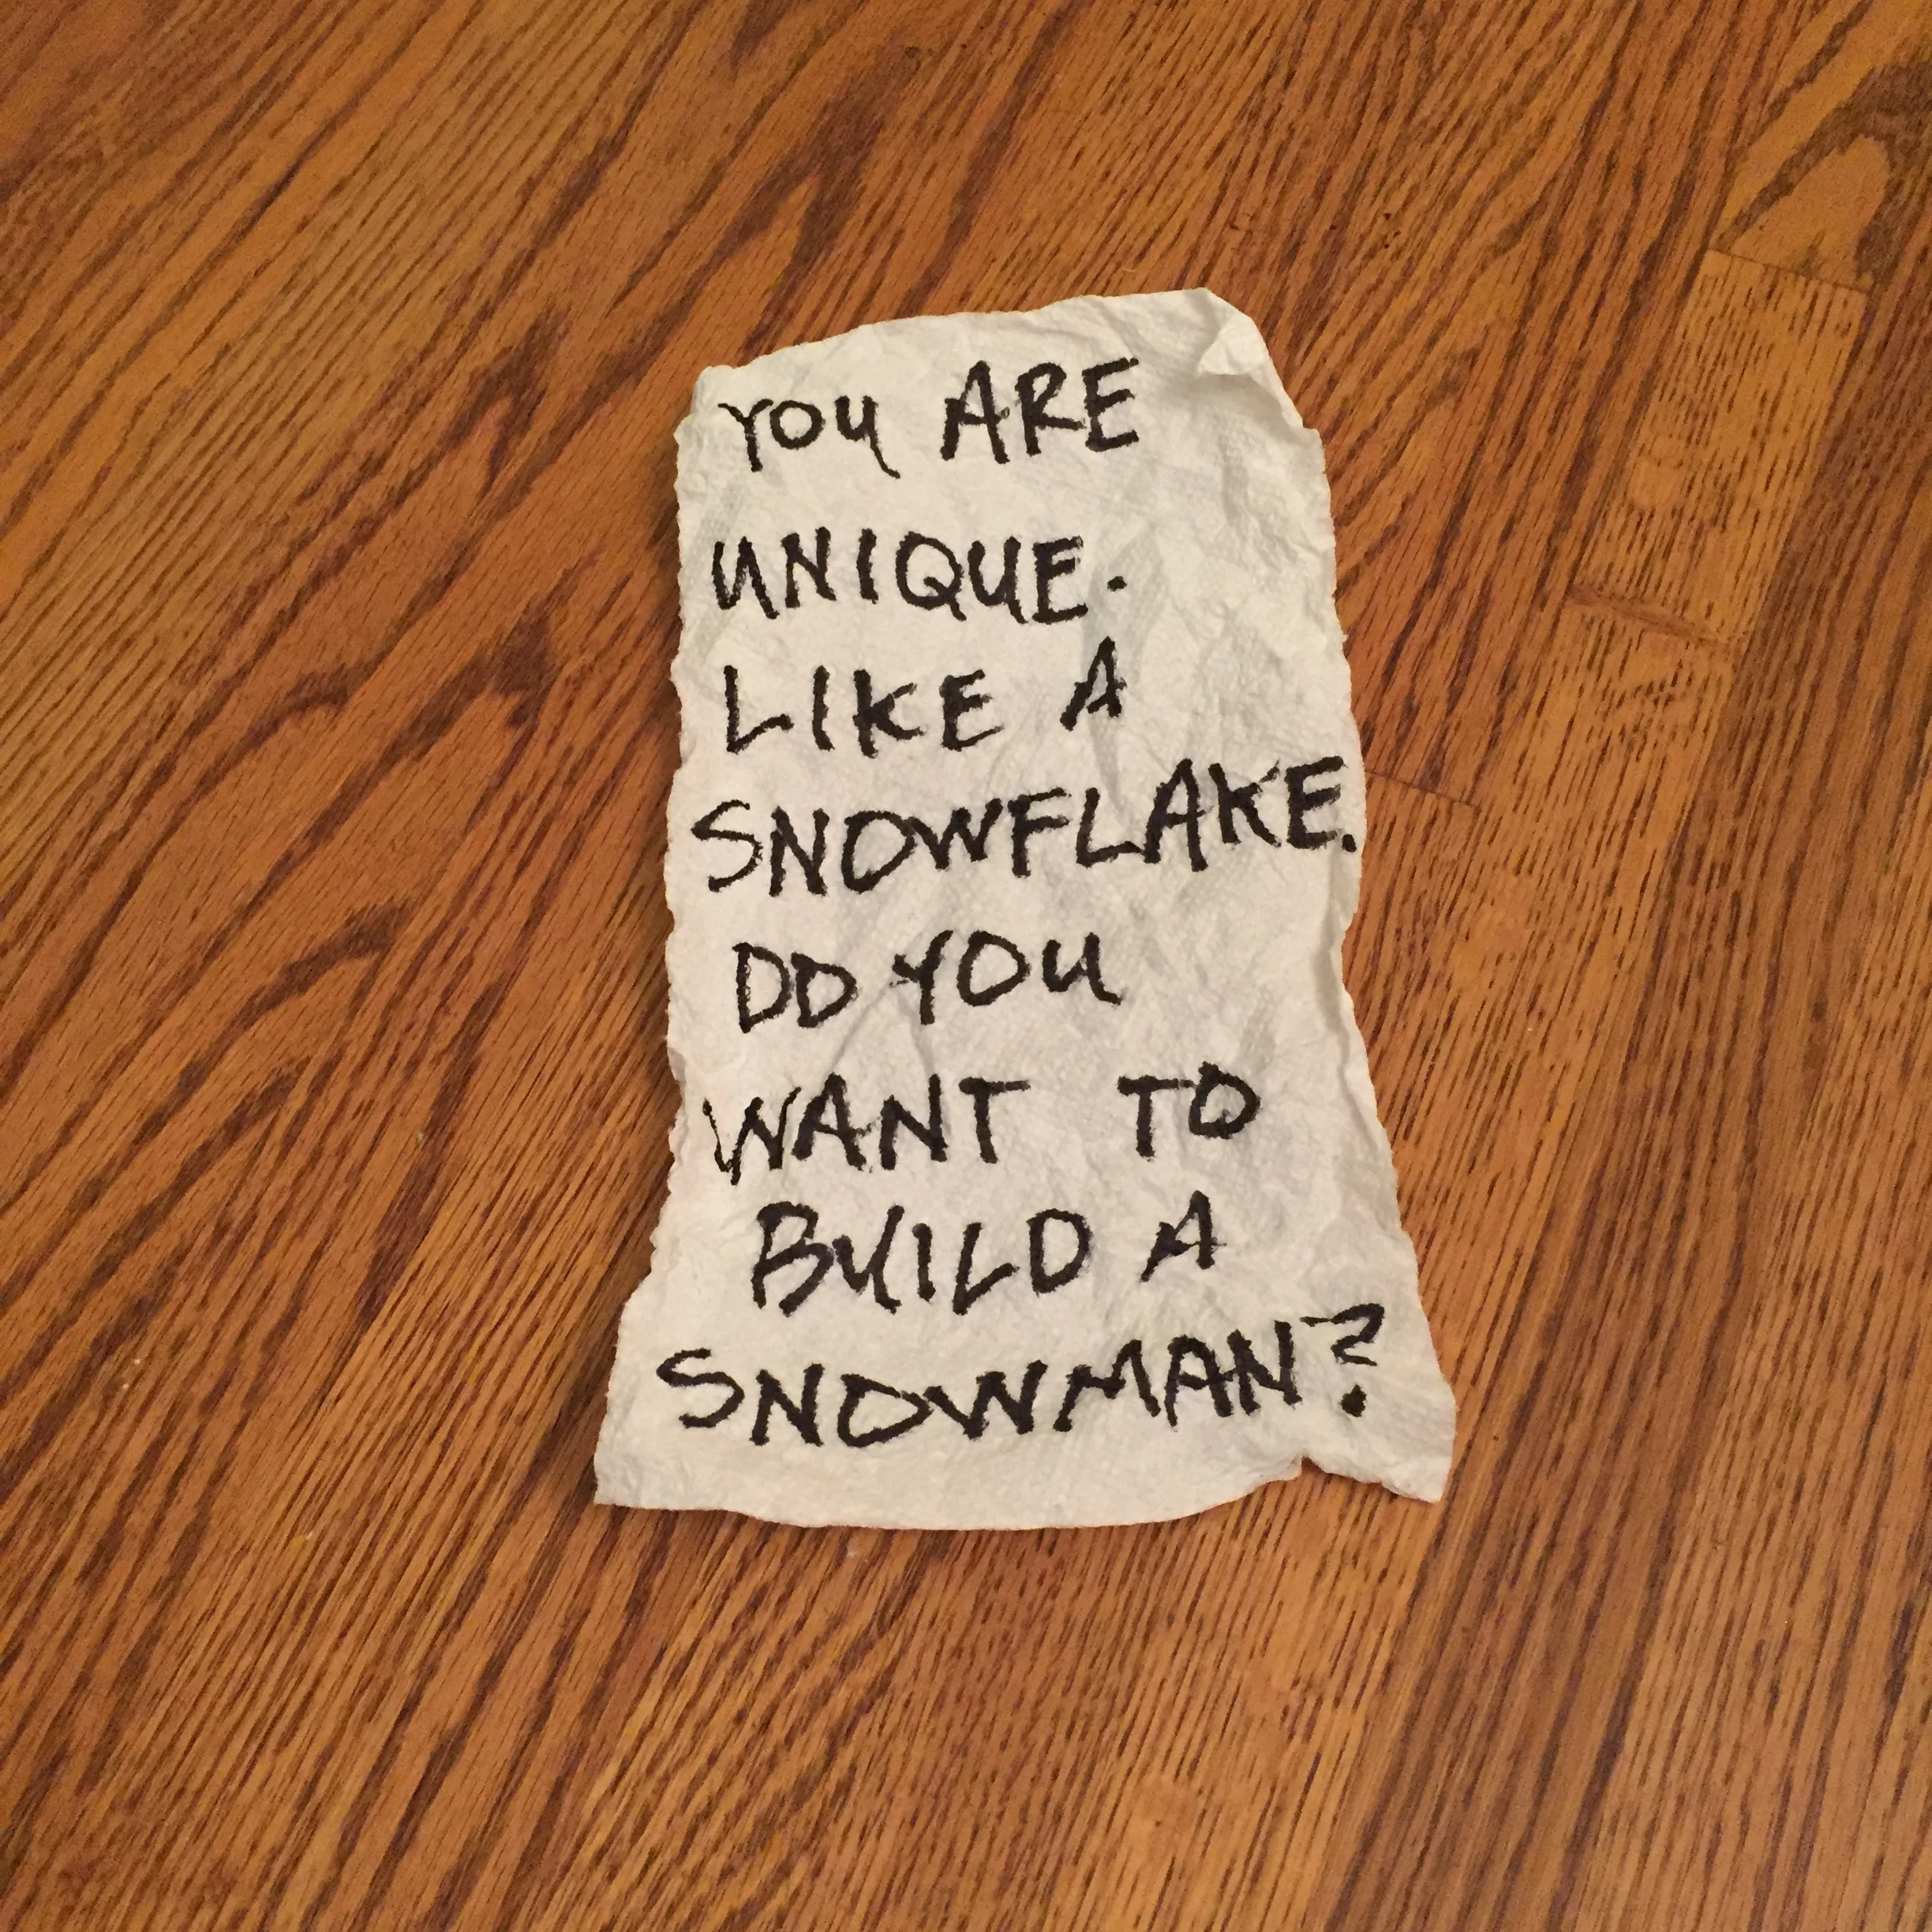 YOU ARE
UNIQUE.
LIKE A
SNOWFLAKE.
DO YOU
WANT TO
BUILD A
SNOWMAN?